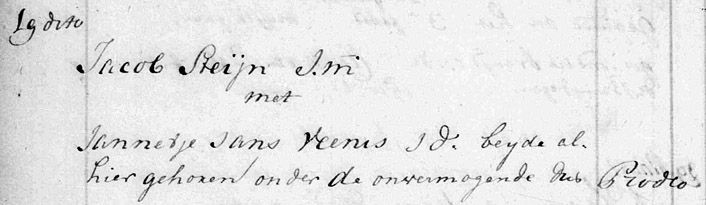 19 dito
Jacob Steijn J.m
met
Jannetje Jans Veenis J d. beyde al-
hier geboren onder de onvermogende dus Prodeo